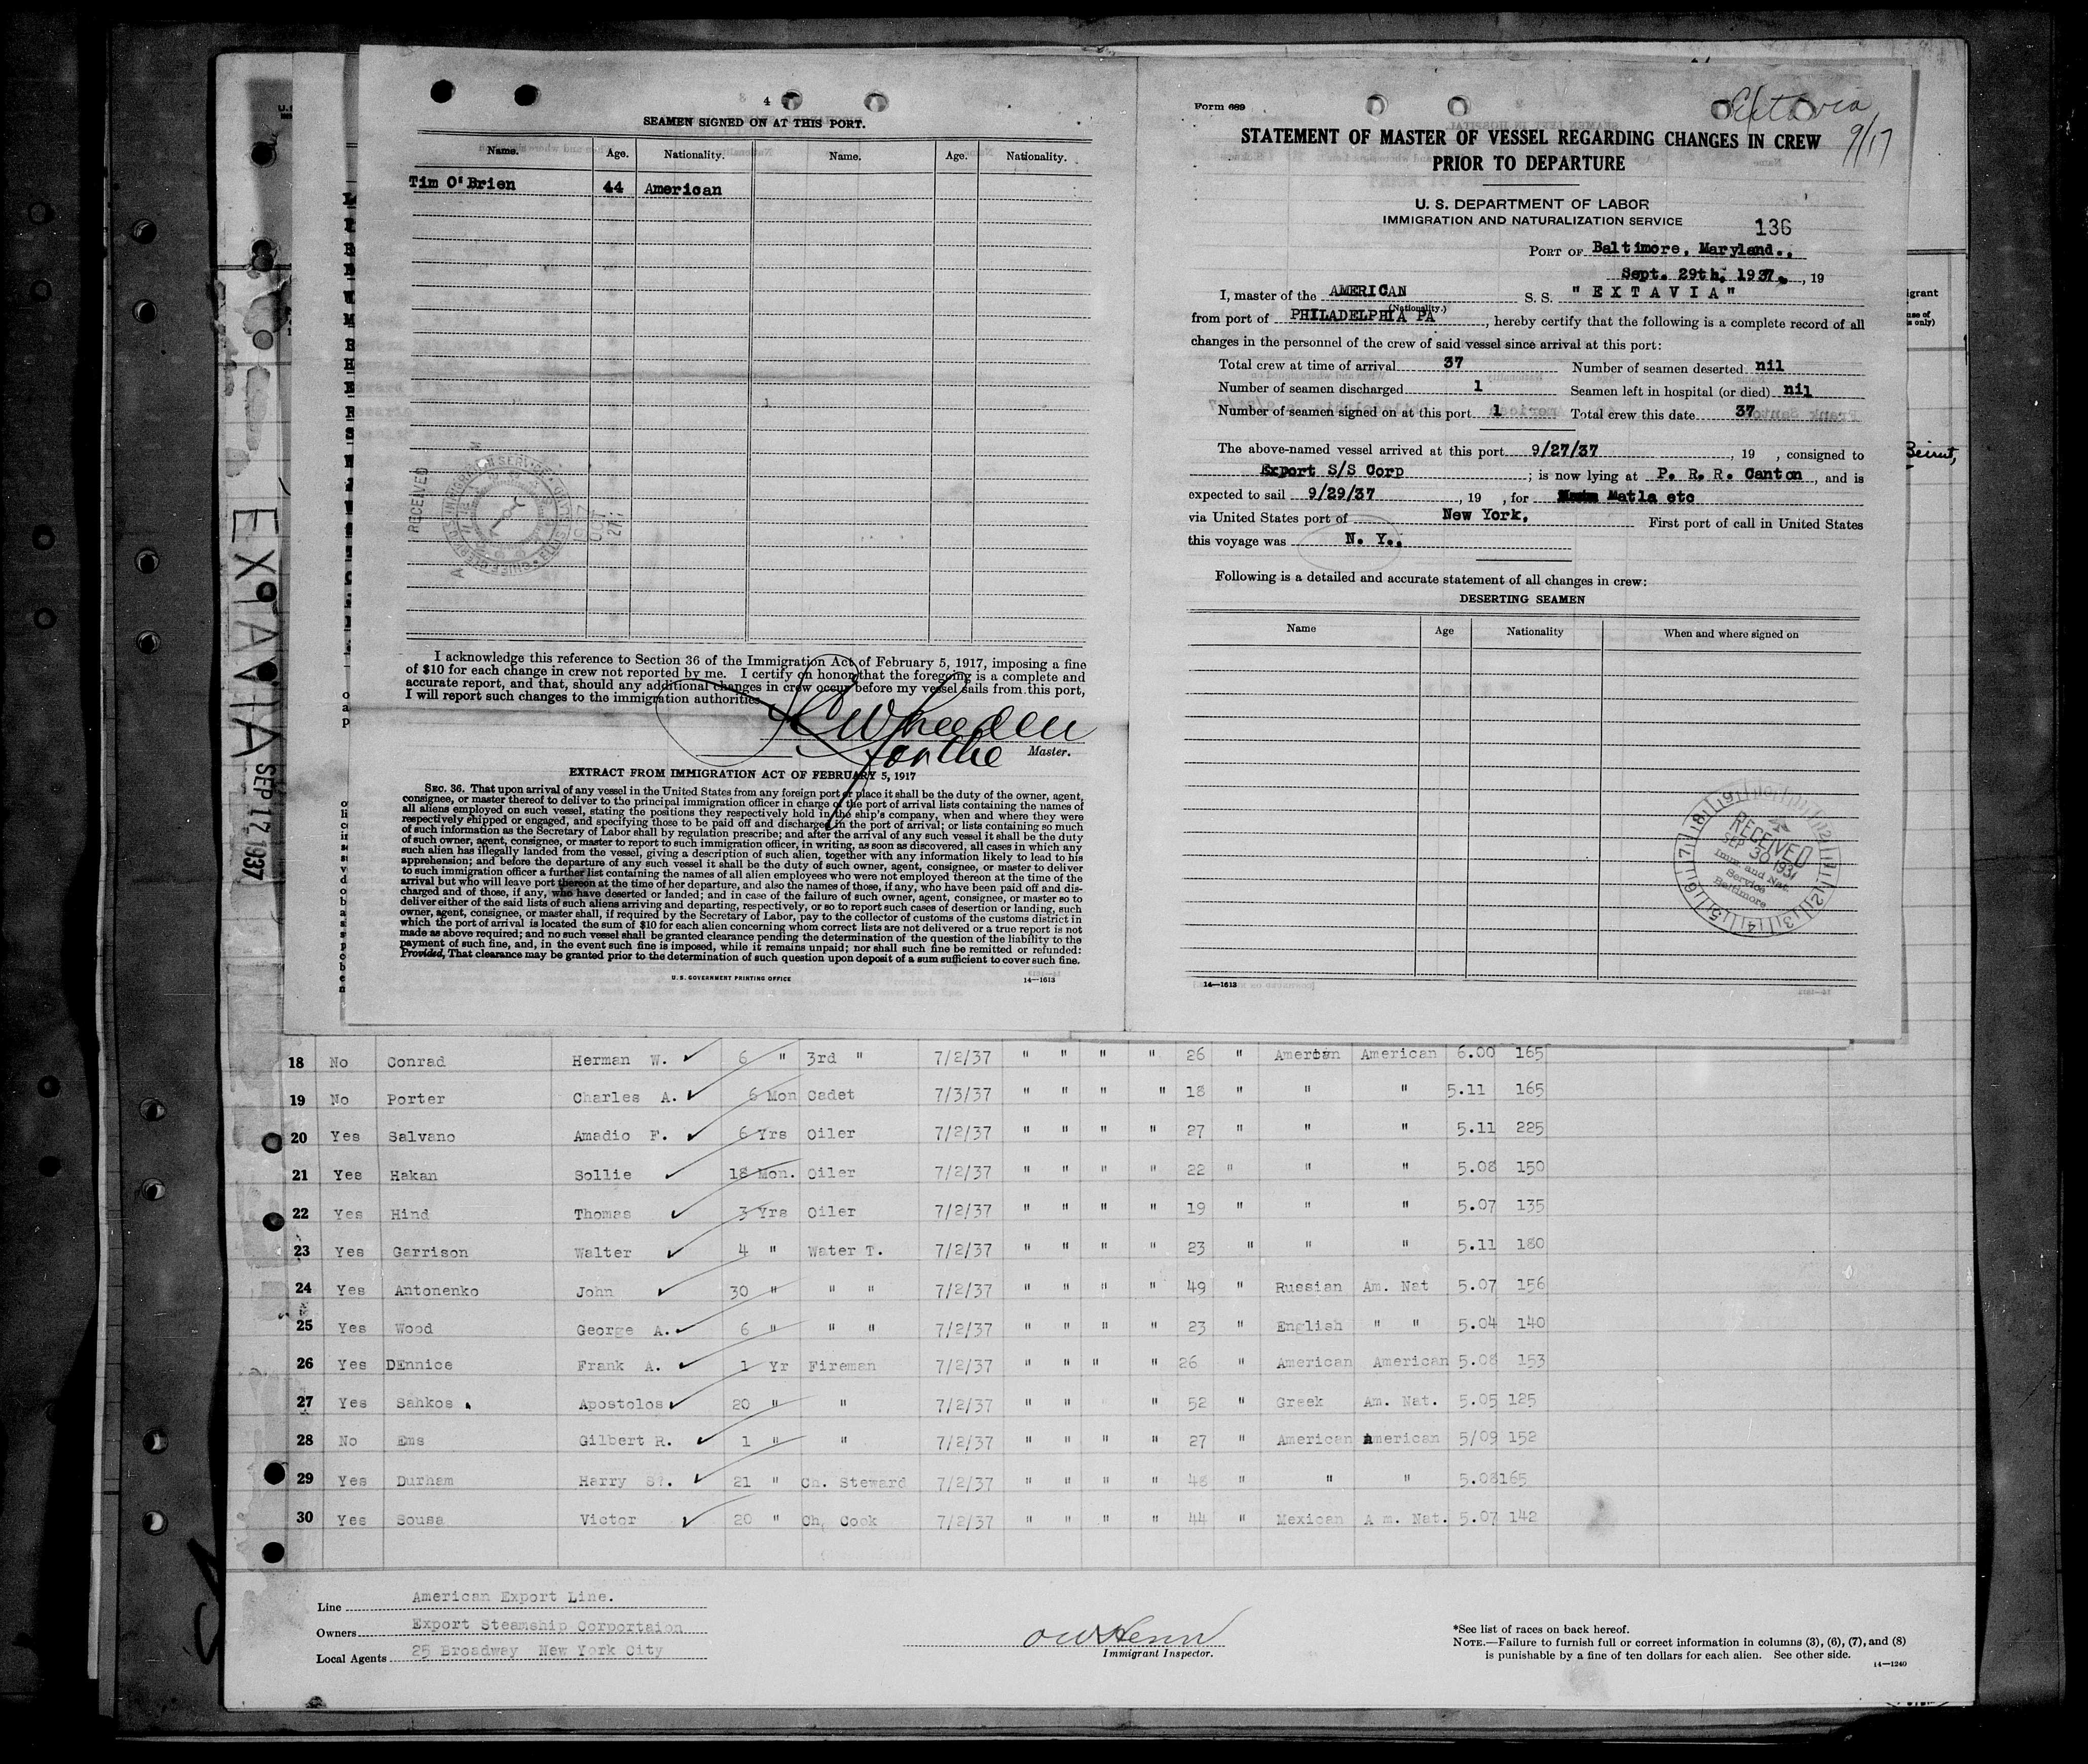 4
SEAMEN SIGNED ON AT THIS PORT.
Name. Age. Nationality. Name. Age. Nationality.
Tim O'Brien 44 American
RECEIVED
I acknowledge this reference to Section 36 of the Immigration Act of February 5, 1917, imposing a fine
of $10 for each change in crew not reported by me. I certify on honor that the foregoing is a complete and
accurate report, and that, should any additional changes in crew occur before my vessel sails from this port,
I will report such changes to the immigration authorities.
for the
Master.
EXTRACT FROM IMMIGRATION ACT OF FEBRUARY 5, 1917
SEC. 36. That upon arrival of any vessel in the United States from any foreign port or place it shall be the duty of the owner, agent,
consignee, or master thereof to deliver to the principal immigration officer in charge of the port of arrival lists containing the names of
all aliens employed on such vessel, stating the positions they respectively hold in the ship's company, when and where they were
respectively shipped or engaged, and specifying those to be paid off and discharged in the port of arrival; or lists containing so much
of such information as the Secretary of Labor shall by regulation prescribe; and after the arrival of any such vessel it shall be the duty
of such owner, agent, consignee, or master to report to such immigration officer, in writing, as soon as discovered, all cases in which any
such alien has illegally landed from the vessel, giving a description of such alien, together with any information likely to lead to his
apprehension; and before the departure of any such vessel it shall be the duty of such owner, agent, consignee, or master to deliver
to such immigration officer a further list containing the names of all alien employees who were not employed thereon at the time of the
arrival but who will leave port thereon at the time of her departure, and also the names of those, if any, who have been paid off and dis-
charged and of those, if any, who have deserted or landed; and in case of the failure of such owner, agent, consignee, or master so to
deliver either of the said lists of such aliens arriving and departing, respectively, or so to report such cases of desertion or landing, such
owner, agent, consignee, or master shall, if required by the Secretary of Labor, pay to the collector of customs of the customs district in
which the port of arrival is located the sum of $10 for each alien concerning whom correct lists are not delivered or a true report is not
made as above required; and no such vessel shall be granted clearance pending the determination of the question of the liability to the
payment of such fine, and, in the event such fine is imposed, while it remains unpaid; nor shall such fine be remitted or refunded:
Provided, That clearance may be granted prior to the determination of such question upon deposit of a sum sufficient to cover such fine.
U. S. GOVERNMENT PRINTING OFFICE 14—1613
Form 689
Extavia
9/17
STATEMENT OF MASTER OF VESSEL REGARDING CHANGES IN CREW
PRIOR TO DEPARTURE
U. S. DEPARTMENT OF LABOR
IMMIGRATION AND NATURALIZATION SERVICE
136
PORT OF Baltimore, Maryland.,
Sept. 29th, 1937., 19
I, master of the AMERICAN S. S. " E X T A V I A "
(Nationality.)
from port of PHILADELPHIA PA, hereby certify that the following is a complete record of all
changes in the personnel of the crew of said vessel since arrival at this port:
Total crew at time of arrival 37 Number of seamen deserted nil
Number of seamen discharged 1 Seamen left in hospital (or died) nil
Number of seamen signed on at this port 1 Total crew this date 37
The above-named vessel arrived at this port 9/27/37, 19 , consigned to
Export S/S Corp ; is now lying at P. R. R. Canton, and is
expected to sail 9/29/37, 19 , for Matla etc
via United States port of New York, First port of call in United States
this voyage was N. Y.,
Following is a detailed and accurate statement of all changes in crew:
DESERTING SEAMEN
Name Age Nationality When and where signed on
RECEIVED
SEP 30 1937
Imm. and Nat.
Service
Baltimore
14—1613
Beirut,
EXTAVIA SEP 17 1937
18 No Conrad Herman W. 6 " 3rd " 7/2/37 " " " " 26 " American American 6.00 165
19 No Porter Charles A. 6 Mon Cadet 7/3/37 " " " " 18 " " " 5.11 165
20 Yes Salvano Amadio F. 6 Yrs Oiler 7/2/37 " " " " 27 " " " 5.11 225
21 Yes Hakan Sollie 18 Mon. Oiler 7/2/37 " " " " 22 " " " 5.08 150
22 Yes Hind Thomas 3 Yrs Oiler 7/2/37 " " " " 19 " " " 5.07 135
23 Yes Garrison Walter 4 " Water T. 7/2/37 " " " " 23 " " " 5.11 180
24 Yes Antonenko John 30 " " " 7/2/37 " " " " 49 " Russian Am. Nat 5.07 156
25 Yes Wood George A. 6 " " " 7/2/37 " " " " 23 " English " " 5.04 140
26 Yes DEnnice Frank A. 1 Yr Fireman 7/2/37 " " " " 26 " American American 5.08 153
27 Yes Sahkos Apostolos 20 " " 7/2/37 " " " 52 " Greek Am. Nat. 5.05 125
28 No Ems Gilbert R. 1 " " 7/2/37 " " " " 27 " American American 5/09 152
29 Yes Durham Harry 21 " Ch. Steward 7/2/37 " " " " 48 " " " 5.08 165
30 Yes Sousa Victor 20 " Ch, Cook 7/2/37 " " " " 44 " Mexican A m. Nat. 5.07 142
Line American Export Line.
Owners Export Steamship Corportaion
Local Agents 25 Broadway New York City
Immigrant Inspector.
*See list of races on back hereof.
NOTE.—Failure to furnish full or correct information in columns (3), (6), (7), and (8)
is punishable by a fine of ten dollars for each alien. See other side.
14—1240